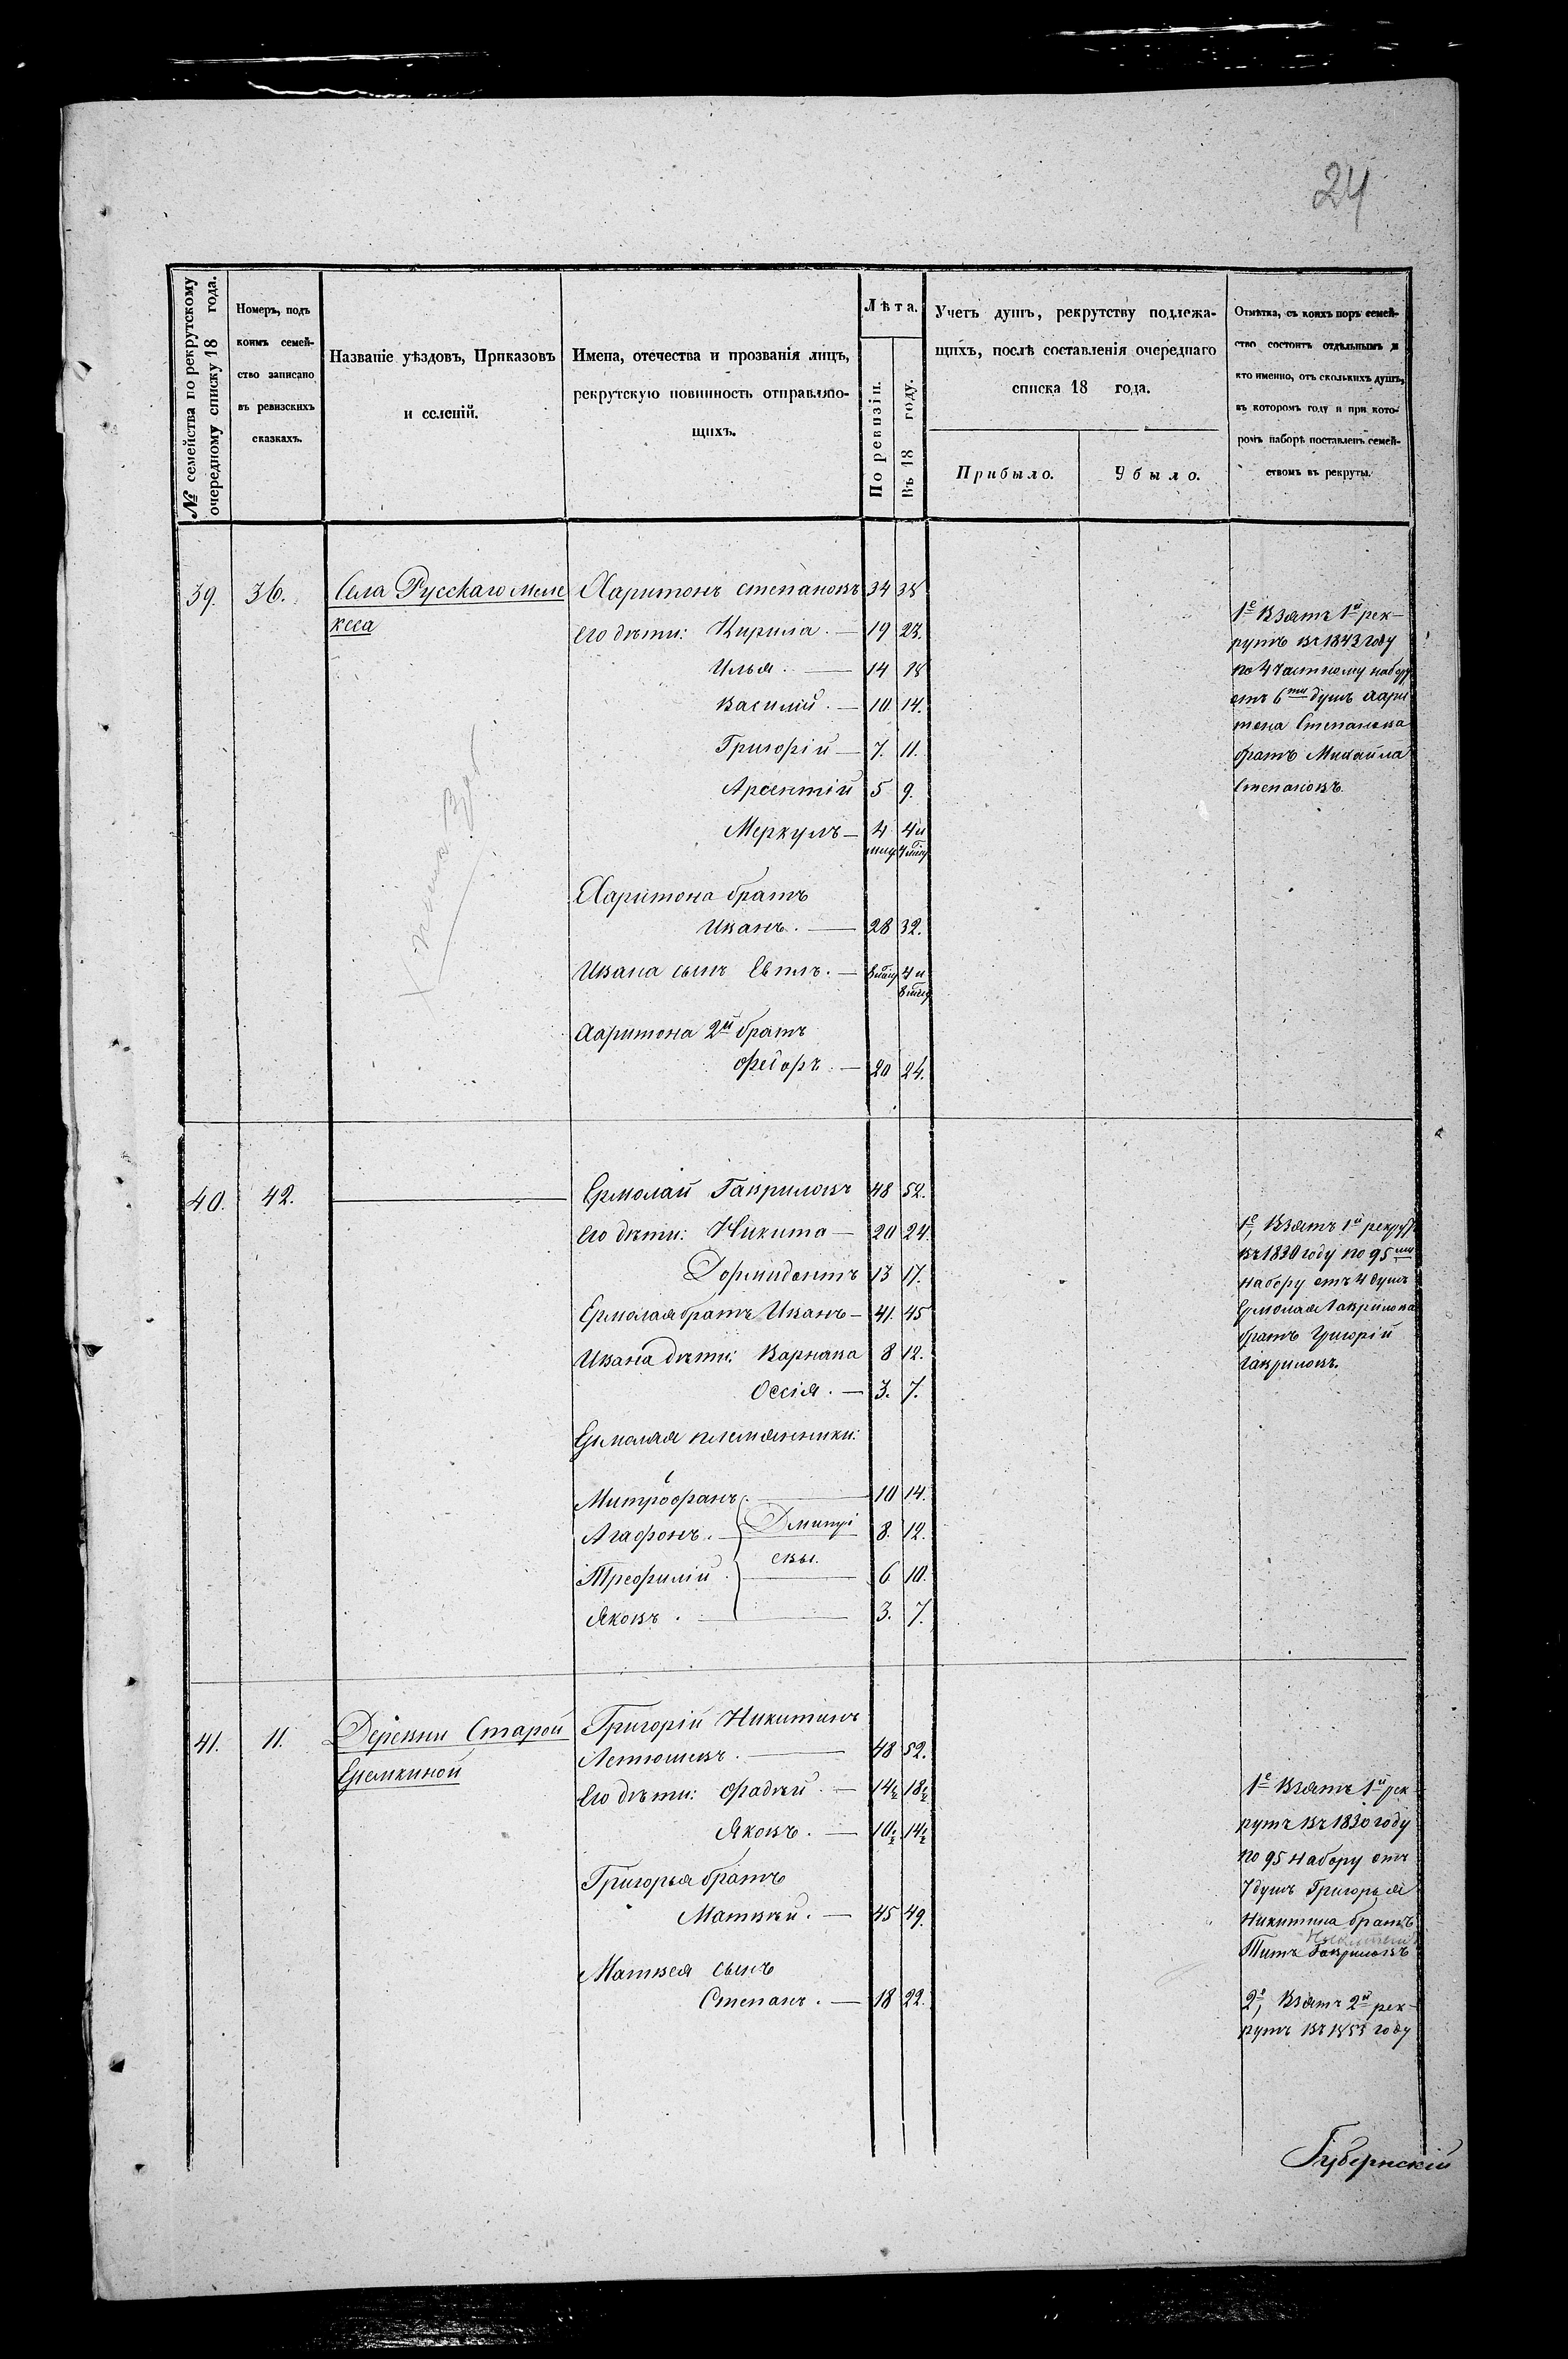 24
№ семейства по рекрутскому
очередному списку 18 года.
Номеръ, подъ
коимъ семей-
ство записано
въ ревизскихъ
сказкахъ.
Названіе уѣздовъ, Приказовъ
и селеній.
Имена, отечества и прозванія лицъ,
рекрутскую повинность отправляю-
щихъ.
Лѣта.
По ревизіи.
Въ 18 году.
Учетъ душъ, рекрутству подлежа-
щихъ, послѣ составленія очереднаго
списка 18 года.
Прибыло.
Убыло.
Отмѣтка, съ коихъ поръ семей-
ство состоитъ отдѣльнымъ и
кто именно, отъ сколькихъ душъ,
въ которомъ году и при кото-
ромъ наборѣ поставленъ семей-
ствомъ въ рекруты.
39. 36. Села Русскаго Меле
кеса
Харитонъ Степановъ 34 38
Его дѣти: Кирила. — 19 23.
Илья. — 14 18
Василий. — 10 14.
Григорій — 7. 11.
Арсентій 5 9.
Меркулъ — 4 4 и
Харитона братъ
Иванъ. — 28 32.
Ивана сынъ — 4 и
Харитона 2й братъ
Федоръ. — 20 24.
1е Взятъ 1й рек-
рутъ въ 1843 году
по 4 частному набору
отъ 6ти душъ Хари
тона Степанова
братъ Михайла
Степановъ.
40. 42.
Ермолай Гавриловъ 48 52.
Его дѣти: Никита — 20 24.
Дормидонтъ 13 17.
Ермолая братъ Иванъ — 41. 45
Ивана дѣти: Варнава 8 12.
Оссія. — 3. 7.
Ермолая племянники:
Митрофанъ. 10 14.
Агафонъ. Дмитрі 8. 12.
евы.
Трефилій 6 10.
Яковъ. 3. 7.
1е, Взятъ 1й рекрутъ
въ 1830 году по 95му
набору отъ 4 душъ
Ермолая Гаврилова
братъ Григорій
Гавриловъ.
41. 11. Деревни Старой
Еремкиной
Григорій Никитинъ
48 52.
Его дѣти: Фадѣй. — 14½ 18½
Яковъ. — 10½ 14½
Григорья братъ
Матвѣй. — 45 49.
Матвея сынъ
Степанъ. — 18 22.
1е Взятъ 1й рек
рутъ въ 1830 году
по 95 набору отъ
7 душъ Григорья
Никитина братъ
Никитинъ
Титъ Гавриловъ
2е, Взятъ 2й рек-
рутъ въ 1853 году
Губернскій